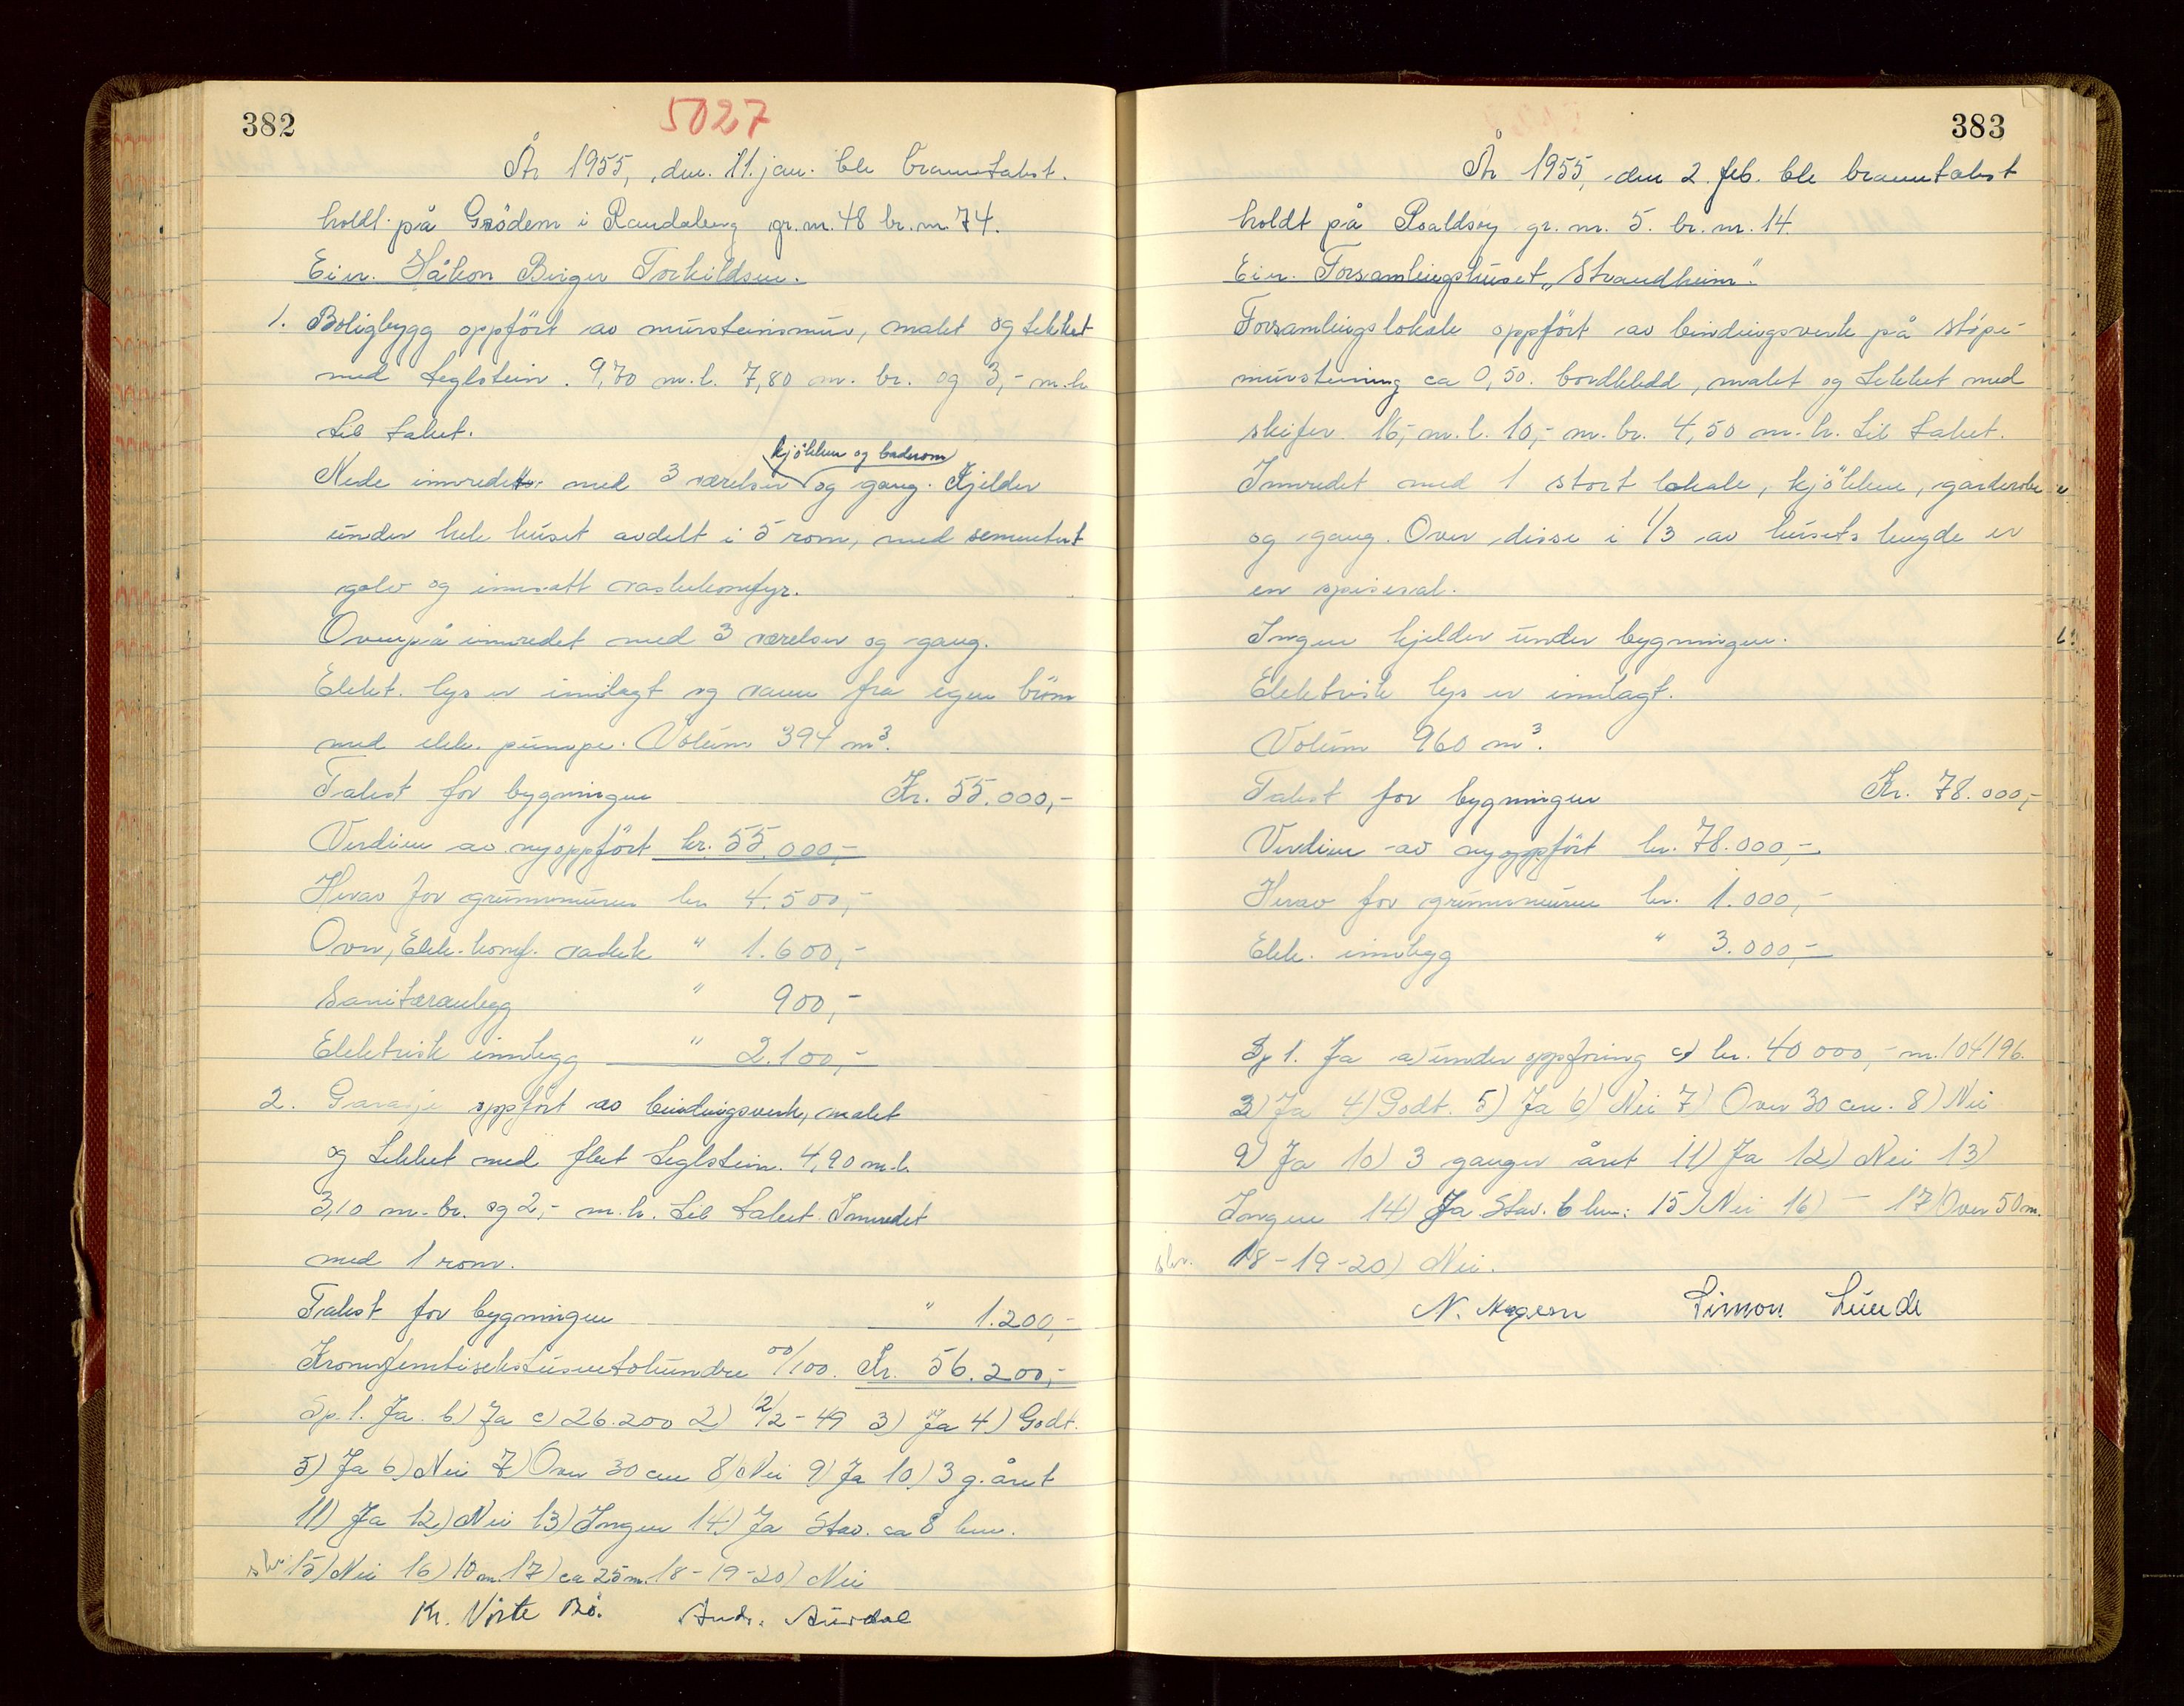 382
5027
År 1955, den 11. jan. ble branntakst.
holdt på Grödem i Randaberg gr. nr. 48 br. nr. 74.
Eier. Håkon Birger Torkildsen.
1. Boligbygg oppfört av mursteinsmur, malet og tekket
med teglstein. 9,70 m. l. 7,80 m. br. og 3,- m. h.
til taket.
kjökken og baderom
Nede innredet med 3 værelser og gang. Kjelder
under hele huset avdelt i 5 rom, med sementert
golv og innsatt vaskekomfyr.
Ovenpå innredet med 3 værelser og gang.
Elekt. lys er innlagt og vann fra egen brönn
med elek. pumpe. Volum 394 m³.
Takst for bygningen Kr. 55.000,-
Verdien av nyoppfört kr. 55.000,-
Herav for grunnmuren kr. 4.500,-
Ovn, Elek. komf. vaskek " 1.600,-
Sanitæranlegg " 900,-
Elektrisk innlegg " 2.100,-
2. Garasje oppfört av bindingsverk, malet
og tekket med flat teglstein. 4,90 m. l.
3,10 m. br. og 2,- m. h. til taket. Innredet
med 1 rom.
Takst for bygningen " 1.200,-
Kronerfemtisekstusentohundre 00/100. Kr. 56.200,-
Sp. 1. Ja. b) Ja c) 26.200 2) 12/2 - 49 3) Ja 4) Godt.
5) Ja 6) Nei 7) Over 30 cm 8) Nei 9) Ja 10) 3 g. året
11) Ja 12) Nei 13) Ingen 14) Ja Stav. ca 8 km.
15) Nei 16) 10 m. 17) ca 25 m. 18 - 19 - 20) Nei
Kr. Viste Bö. Andr. Aurdal
383
År 1955, den 2. feb. ble branntakst
holdt på Roaldsøy gr. nr. 5. br. nr. 14.
Eier. Forsamlingshuset „Strandheim".
Forsamlingslokale oppfört av bindingsverk på stöpe-
murstening ca 0,50. bordkledd, malet og tekket med
skifer. 16,- m. l. 10,- m. br. 4,50 m. h. til taket.
Innredet med 1 stort lokale, kjökken, garderobe
og gang. Over disse i 1/3 av husets lengde er
en spisesal.
Ingen kjelder under bygningen.
Elektrisk lys er innlagt.
Volum 960 m³.
Takst for bygningen Kr. 78.000,-
Verdien av nyoppfört kr. 78.000,-
Herav for grunnmuren kr. 1.000,-
Elek. innlegg " 3.000,-
Sp 1. Ja a) under oppföring c) kr. 40 000,- nr. 104196.
3) Ja 4) Godt. 5) Ja 6) Nei 7) Over 30 cm. 8) Nei
9) Ja 10) 3 ganger året 11) Ja 12) Nei 13)
Ingen 14) Ja Stav. 6 km. 15) Nei 16) - 17) Over 50 m.
skr. 18 - 19 - 20) Nei.
N. Simon Lunde